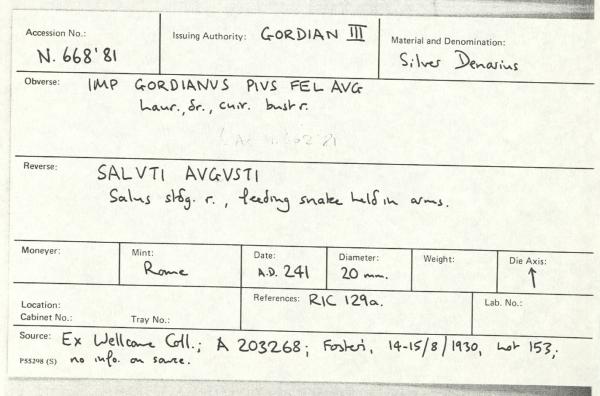 Accession No.: N. 668'81
Issuing Authority: GORDIAN III
Material and Denomination: Silver Denarius
Obverse: IMP GORDIANVS PIVS FEL AVG
Laur., dr., cuir. bust r.
Reverse: SALVTI AVGVSTI
Salus stdg. r., feeding snake held in arms.
Moneyer:
Mint: Rome
Date: A.D. 241
Diameter: 20 mm.
Weight:
Die Axis: ↑
Location:
Cabinet No.: Tray No.:
References: RIC 129a.
Lab. No.:
Source: Ex Wellcome Coll.; A 203268; Fosters, 14-15/8/1930, Lot 153;
P55298 (S) no info. on source.